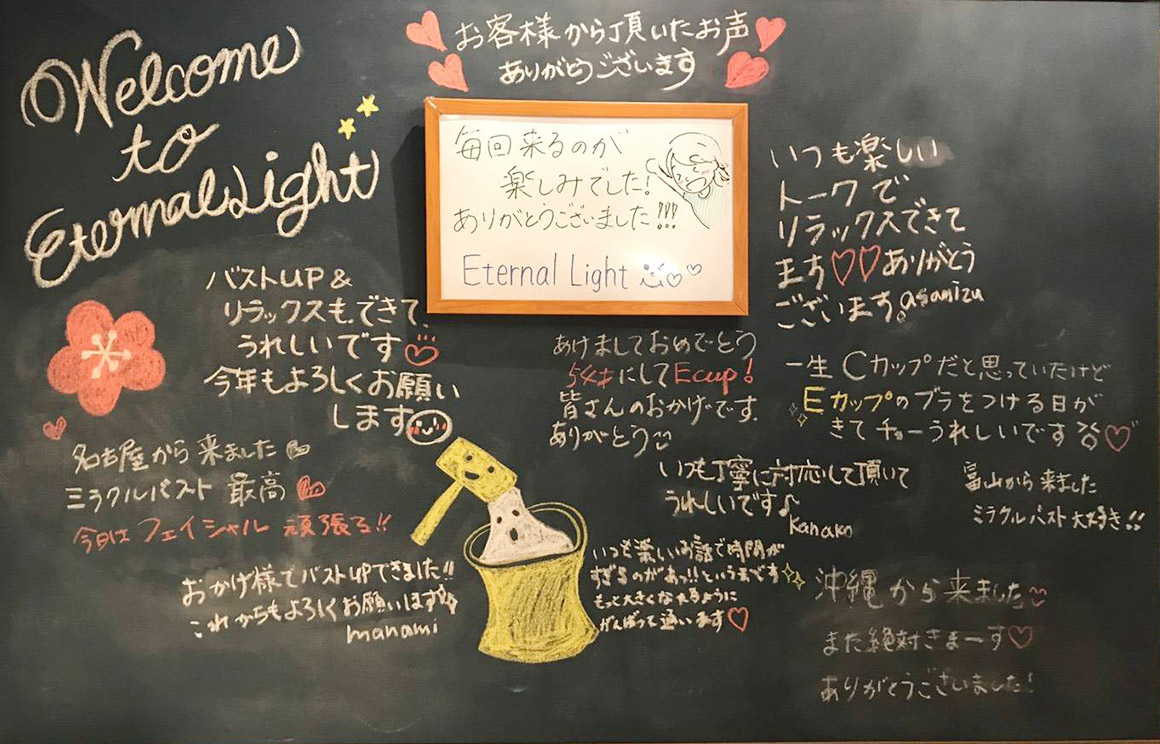 Welcome
to
Eternal Light
お客様から頂いたお声
ありがとうございます
毎回来るのが
楽しみでした!
ありがとうございました!!!
Eternal Light
いつも楽しい
トークで
リラックスできて
ます♡♡ありがとう
ございます。asamizu
バストUP&
リラックスもできて、
うれしいです♡
今年もよろしくお願い
します
あけましておめでとう
54才にしてEcup!
皆さんのおかげです。
ありがとう
一生Cカップだと思っていたけど
Eカップのブラをつける日が
きてチョーうれしいです♡
名古屋から来ました
ミラクルバスト最高
今日はフェイシャル頑張る!!
いつも丁寧に対応して頂いて
うれしいです♪
kanako
富山から来ました
ミラクルバスト大好き!!
おかげ様でバストUPできました!!
これからもよろしくお願います
manami
いつも楽しいお話で時間が
すぎるのがあっ!!というまです
もっと大きくなれるように
がんばって通います♡
沖縄から来ました
また絶対きまーす♡
ありがとうございました!